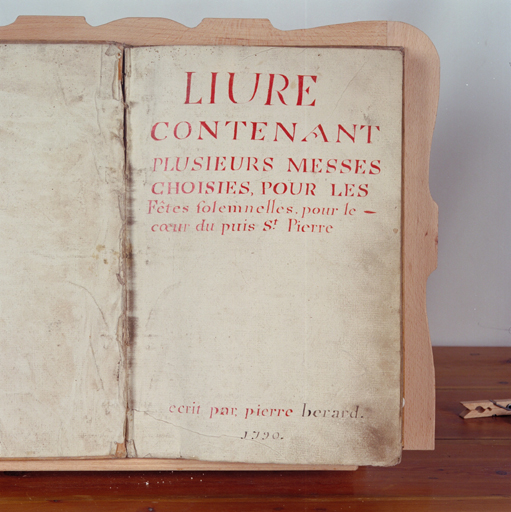 LIURE
CONTENANT
PLUSIEURS MESSES
CHOISIES, POUR LES
Fêtes solemnelles, pour le –
cœur du puis St Pierre
ecrit par pierre berard.
1790.